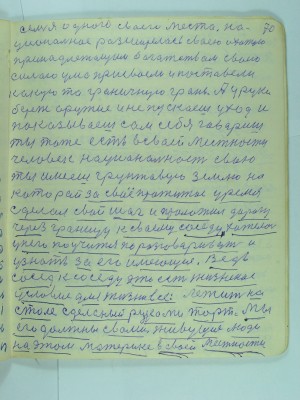 семя одного своего места, на-
циональное размирелася своею охотою
принадлежащим богатством своею
силою ума присвоеем и поставели
какую то граничную грань. А у руках
береш оружие и не пускаеш уход и
показываеш сам себя гавариш
ты тоже есть в своей местности
человек националност свою
ты имееш грунтовую землю на
которай за своё прожитое уремя
сделал свой шаг и проложил дарогу
через границу к своему соседу, хателося
у него поучится поразговаривать и
узнать за его имеющее. Ведь
сосед к соседу это ест жизненое
условие для жизни все: лежит на
столе сделеный руками торт. Мы
его должны своими живущие люди
на этом материке в своей местности
70